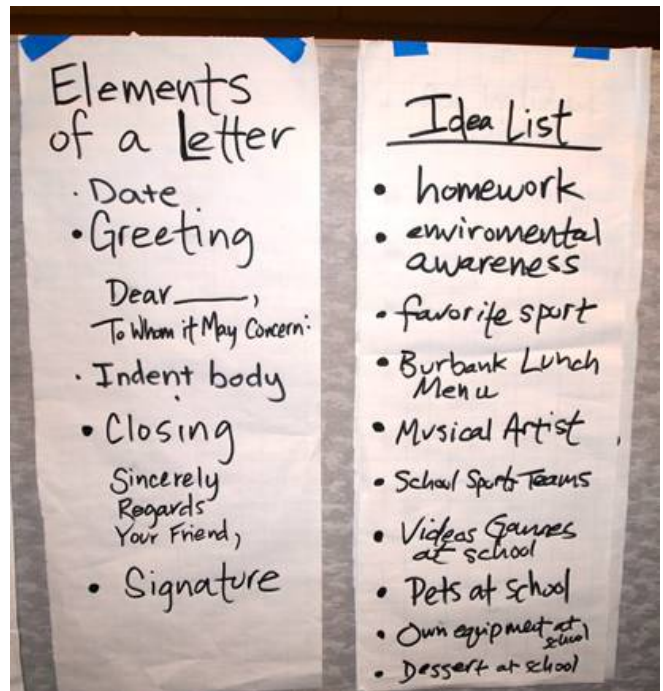 Elements
of a Letter
· Date
• Greeting
Dear____,
To Whom it May Concern:
· Indent body
• Closing
Sincerely
Regards
Your Friend,
• Signature
Idea List
• homework
• enviromental
awareness
• favorite sport
• Burbank Lunch
Menu
• Musical Artist
• School Sports Teams
• Videos Games
at school
• Pets at school
• Own equipment at
school
• Dessert at school